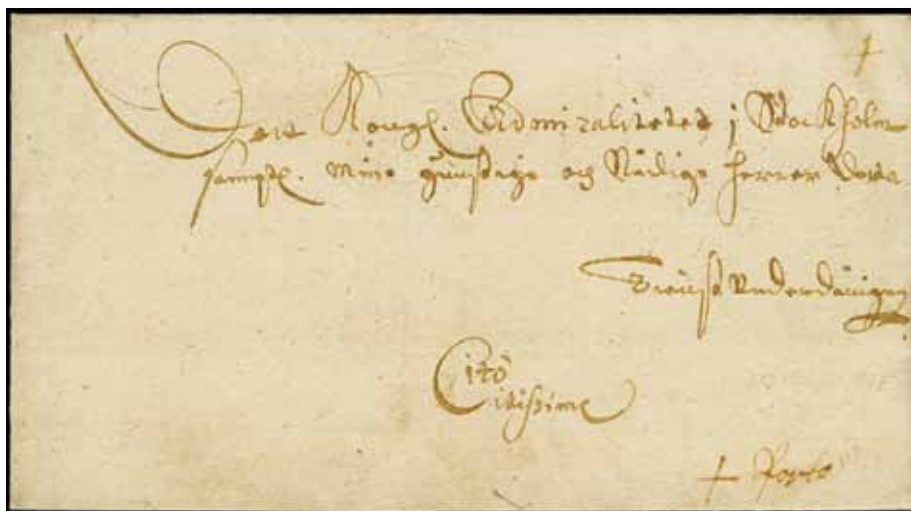 Dett Kongl. Admiralitetet j Stockholm
samptl. Mine gunstige og Nådige herrer Dora
Tienst Underdånigen
Cito
Citissime
+ Porto